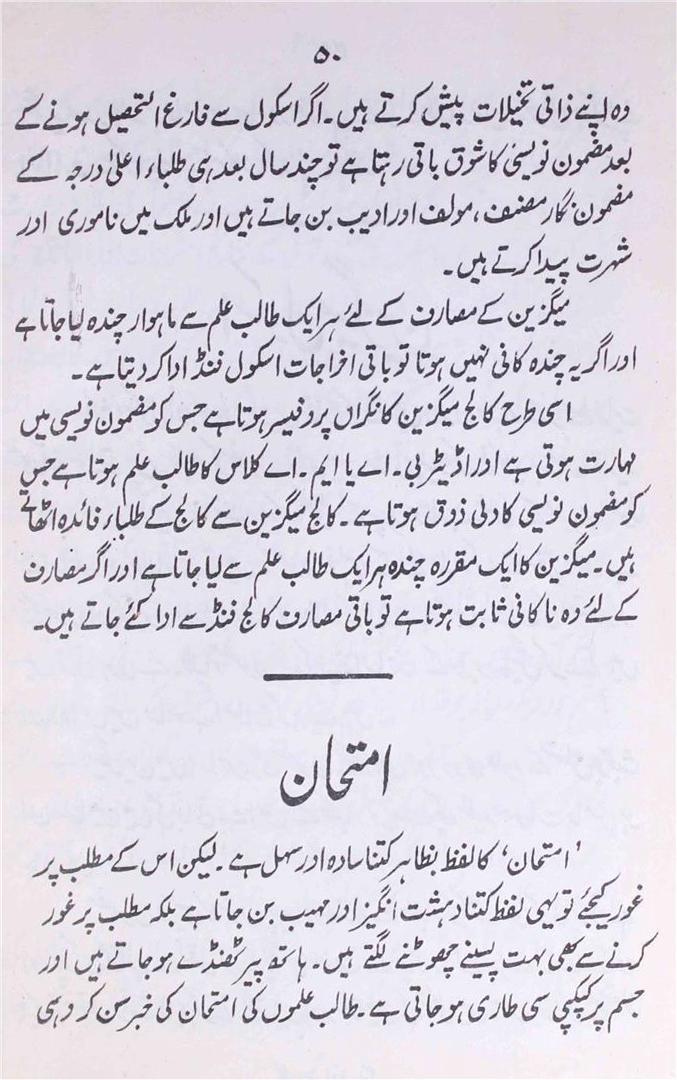 ۵۰
وہ اپنے ذاتی تخیلات پیش کرتے ہیں۔ اگر اسکول سے فارغ التحصیل ہونے کے
بعد مضمون نویسی کا شوق باقی رہتا ہے تو چند سال بعد ہی طلباء اعلیٰ درجہ کے
مضمون نگار مصنف، مولف اور ادیب بن جاتے ہیں اور ملک میں ناموری اور
شہرت پیدا کرتے ہیں۔
میگزین کے مصارف کے لئے ہر ایک طالب علم سے ماہوار چندہ لیا جاتا ہے
اور اگر یہ چندہ کافی نہیں ہوتا تو باقی اخراجات اسکول فنڈ ادا کر دیتا ہے۔
اسی طرح کالج میگزین کا نگراں پروفیسر ہوتا ہے جس کو مضمون نویسی میں
مہارت ہوتی ہے اور اڈیٹر بی۔ اے یا ایم۔ اے کلاس کا طالب علم ہوتا ہے جس
کو مضمون نویسی کا دلی ذوق ہوتا ہے۔ کالج میگزین سے کالج کے طلباء فائدہ اٹھاتے
ہیں۔ میگزین کا ایک مقررہ چندہ ہر ایک طالب علم سے لیا جاتا ہے اور اگر مصارف
کے لئے وہ ناکافی ثابت ہوتا ہے تو باقی مصارف کالج فنڈ سے ادا کئے جاتے ہیں۔
امتحان
’امتحان‘ کا لفظ بظاہر کتنا سادہ اور سہل ہے۔ لیکن اس کے مطلب پر
غور کیجئے تو یہی لفظ کتنا دہشت انگیز اور مہیب بن جاتا ہے بلکہ مطلب پر غور
کرنے سے بھی بہت پسینے چھوٹنے لگتے ہیں۔ ہاتھ پیر ٹھنڈے ہو جاتے ہیں اور
جسم پر کپکپی سی طاری ہو جاتی ہے۔ طالب علموں کی امتحان کی خبر سن کر وہی